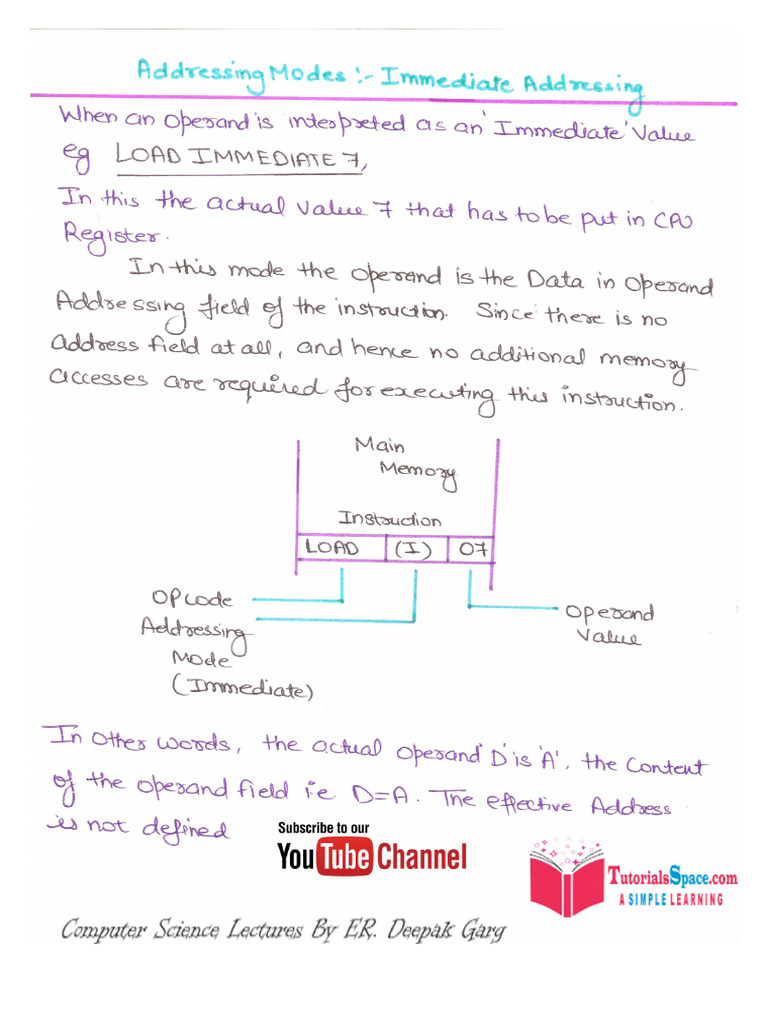 Addressing Modes :- Immediate Addressing
When an operand is interpreted as an 'Immediate' Value
eg LOAD IMMEDIATE 7,
In this the actual value 7 that has to be put in CPU
Register.
In this mode the operand is the Data in operand
Addressing field of the instruction. Since there is no
address field at all, and hence no additional memory
accesses are required for executing this instruction.
Main
Memory
Instruction
LOAD (I) 07
OPcode
Operand
Value
Addressing
Mode
(Immediate)
In other words, the actual operand 'D' is 'A', the content
of the operand field i.e D=A. The effective Address
is not defined
Subscribe to our
YouTube Channel
TutorialsSpace.com
A SIMPLE LEARNING
Computer Science Lectures By ER. Deepak Garg